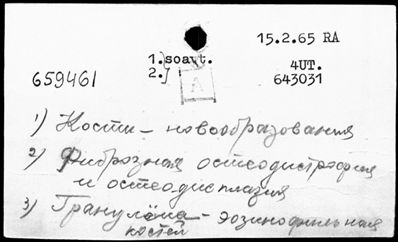 15.2.65 RA
1.}soavt.
2.}
4UT.
643031
659461
A
1) Кости – новообразования
2) Фиброзная остеодистрофия
и остеодисплазия
3) Гранулёма – эозинофильная
костей